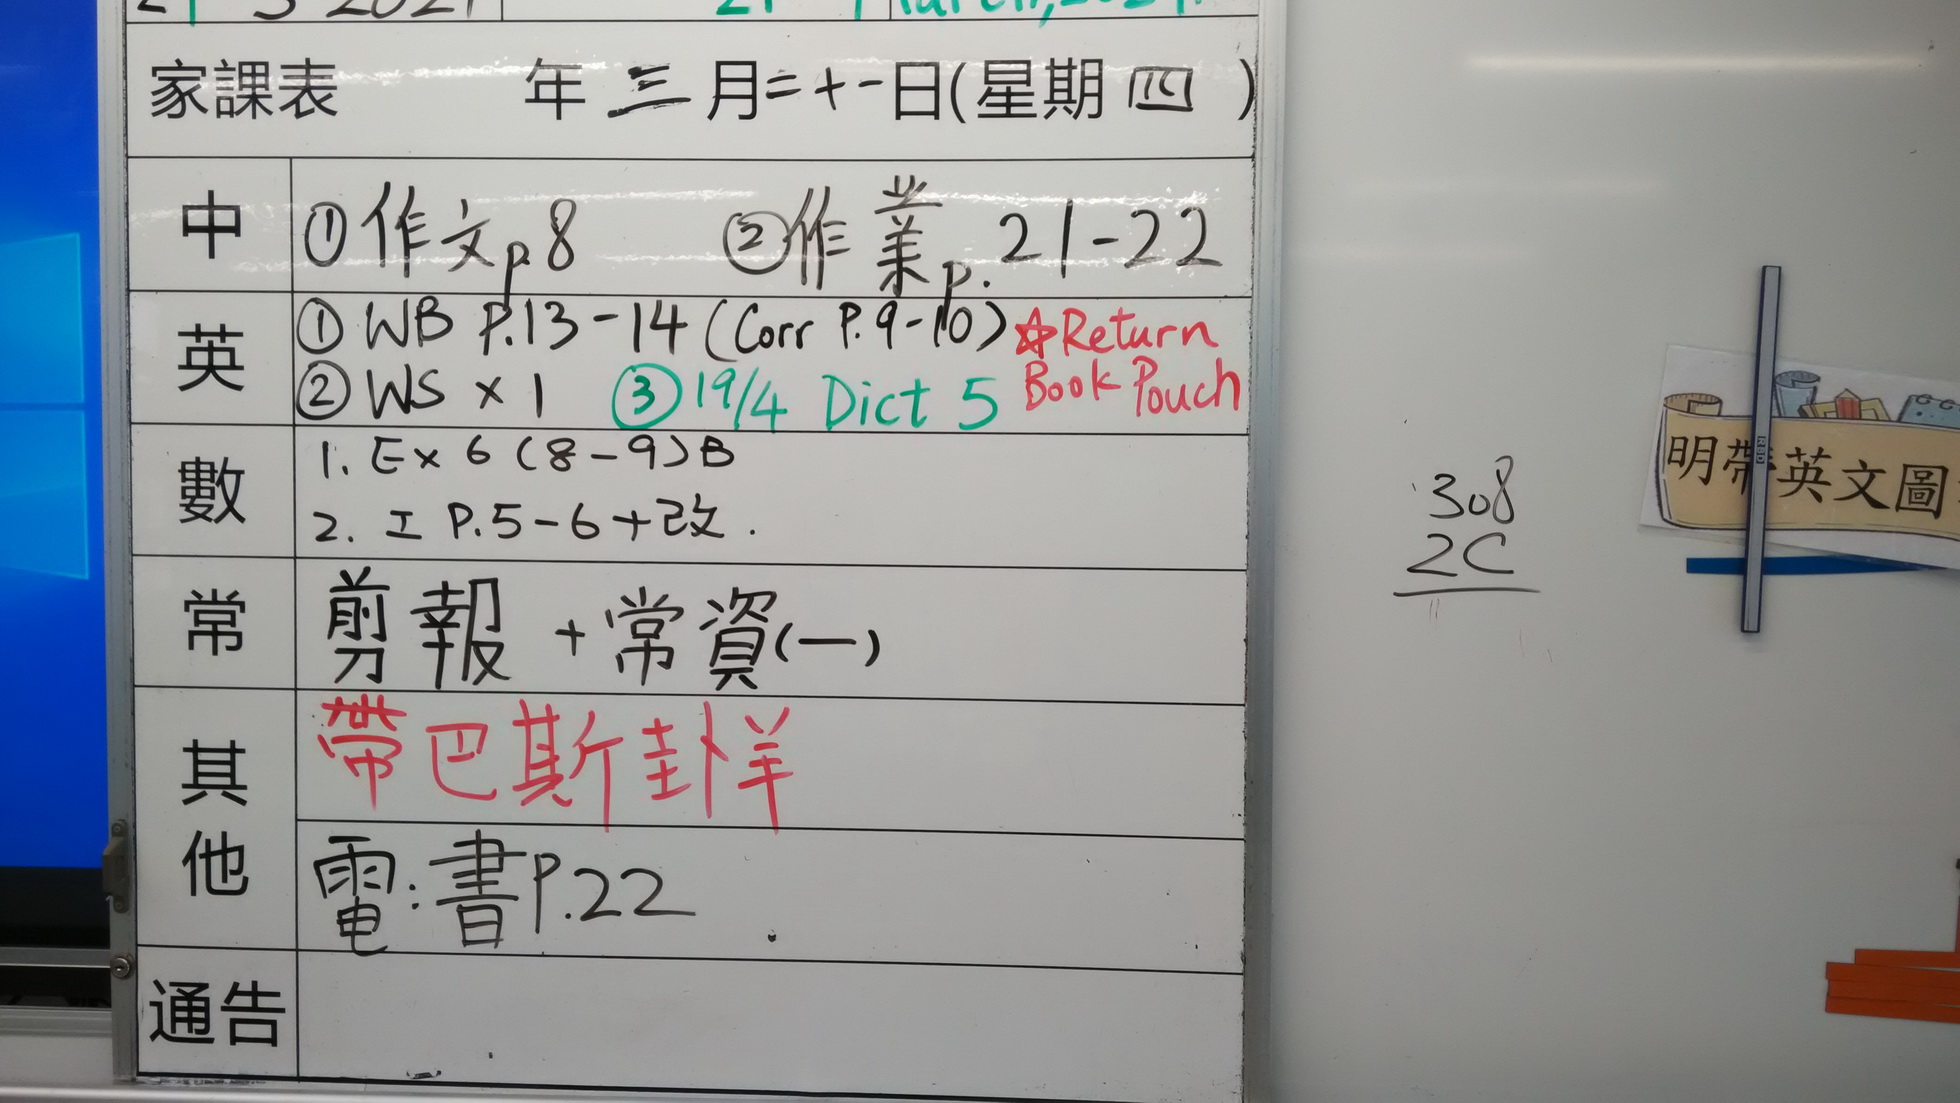 家課表 年 三 月 二十一 日(星期 四 )
中 ①作文p.8 ②作業p.21-22
英 ① WB P.13-14 (Corr P.9-10) ☆Return
② WS × 1 ③ 19/4 Dict 5 Book Pouch
數 1. Ex 6 (8-9)B
2. 工 P.5-6+改.
常 剪報 + 常資(一)
其他 帶巴斯卦洋
電:書P.22
通告
308
2C
明帶英文圖